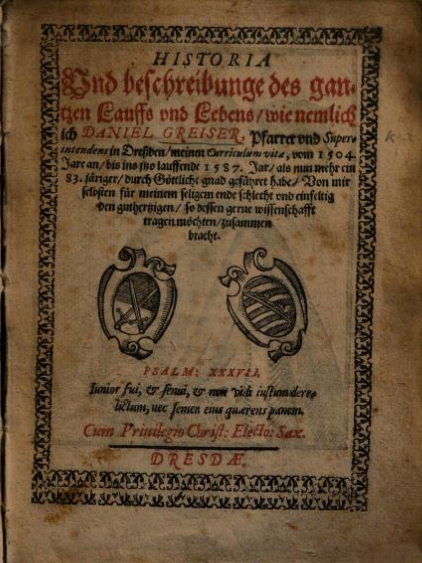 HISTORIA
Und beschreibunge des gan-
tzen Lauffs vnd Lebens/ wie nemlich
ich DANIEL GREISER, Pfarrer vnd Super-
intendens in Dreßden/ meinen Curriculum vitæ, vom 1504.
Jare an/ bis ins itzo lauffende 1587. Jar/ als nun mehr ein
83. järiger/ durch Göttliche gnad geführet habe/ Von mir
selbsten für meinem seligem ende schlecht vnd einfeltig
den guthertzigen/ so dessen gerne wissenschafft
tragen möchten/ zusammen
bracht.
PSALM: XXXVII.
Iunior fui, & senui, & non vidi iustum dere-
lictum, nec semen eius quærens panem.
Cum Privilegio Christ: Electo: Sax.
DRESDÆ.